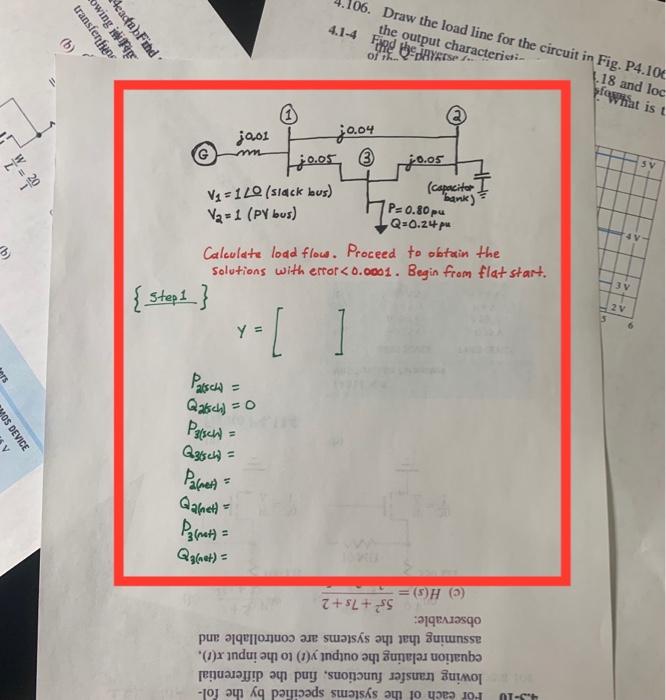 4.106. Draw the load line for the circuit in Fig. P4.106
the output characteristi
.18 and loc
4.1-4 Find the inverse
What is t
(b)
W/L = 20/1
(b)
MOS DEVICE
5 V
4 V
3 V
2 V
5 6
① ②
j0.01 j0.04
G j0.05 ③ j0.05
V₁ = 1∠0 (slack bus) (capacitor bank)
V₂ = 1 (PV bus) P = 0.80 pu
Q = 0.24 pu
Calculate load flow. Proceed to obtain the
solutions with error < 0.0001. Begin from flat start.
{ Step 1 }
Y = [ ]
P2(sch) =
Q2(sch) = 0
P3(sch) =
Q3(sch) =
P2(net) =
Q2(net) =
P3(net) =
Q3(net) =
(c) H(s) = 5s+... 
observable:
assuming that the systems are controllable and
equation relating the output y(t) to the input x(t),
lowing transfer functions, find the differential
4.3-10 For each of the systems specified by the fol-